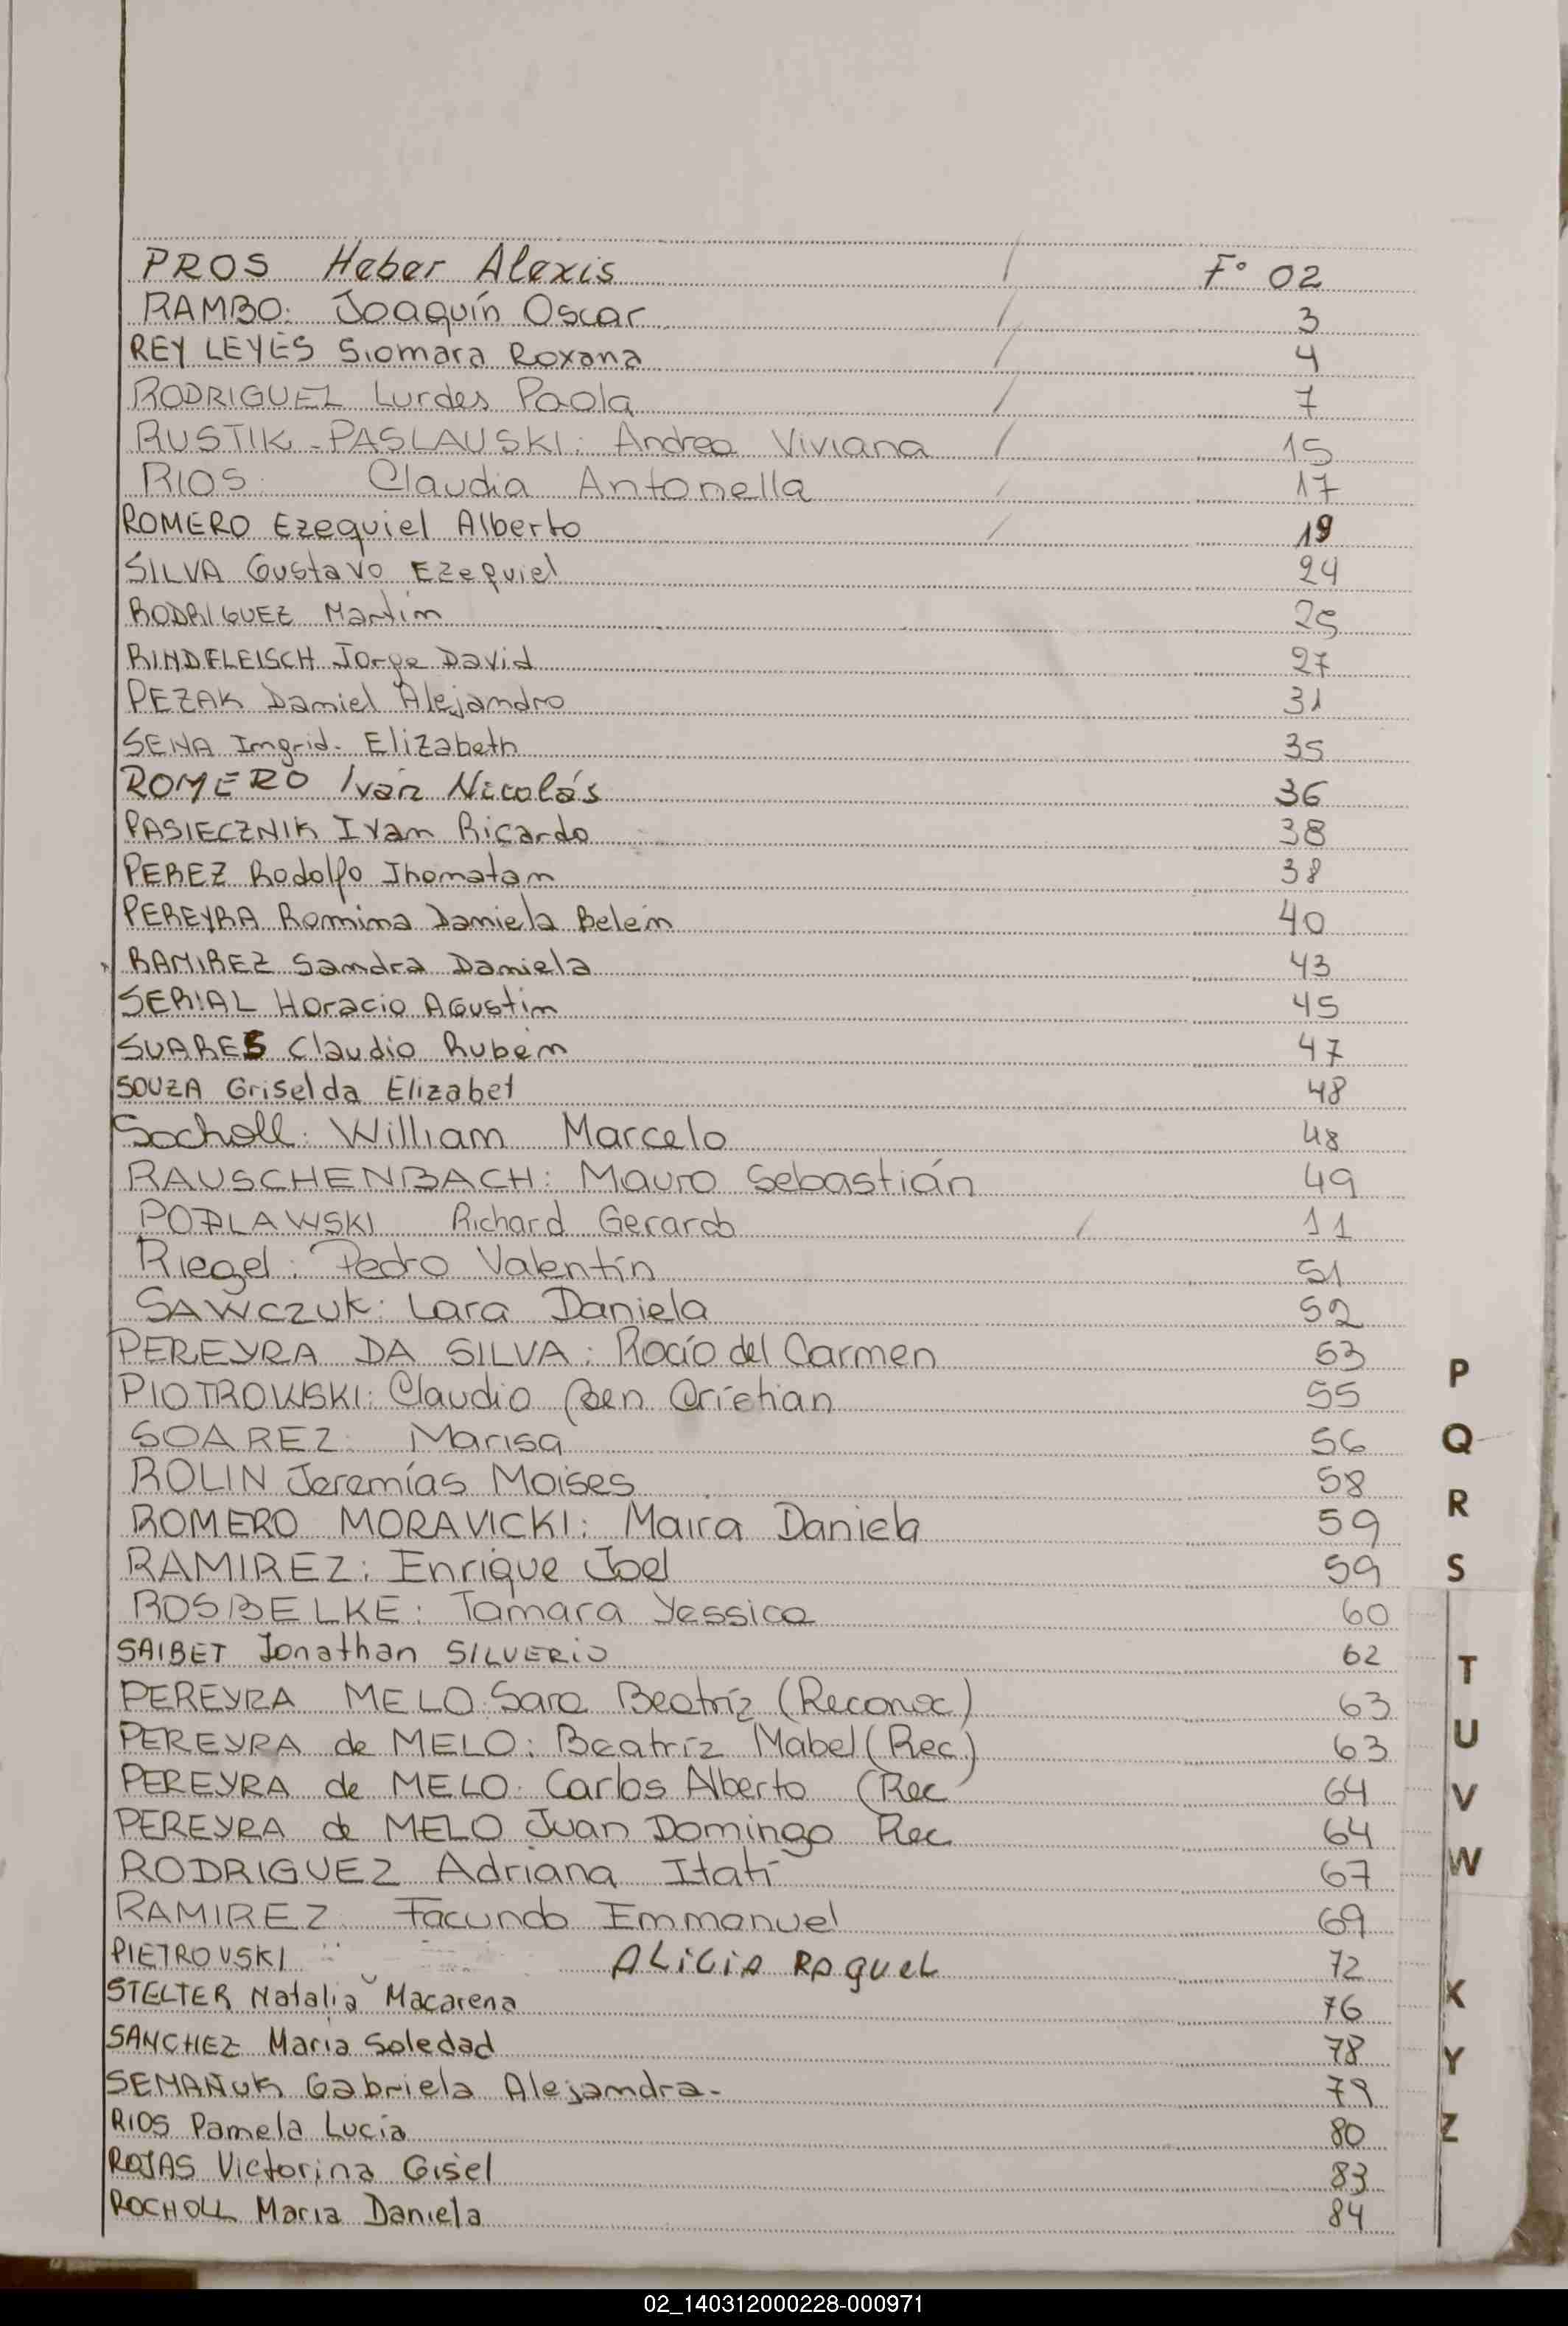 PROS Heber Alexis / F° 02
RAMBO: Joaquín Oscar / 3
REY LEYES Siomara Roxana / 4
RODRIGUEZ Lurdes Paola / 7
RUSTIK-PASLAUSKI: Andrea Viviana / 15
RIOS Claudia Antonella / 17
ROMERO Ezequiel Alberto / 19
SILVA Gustavo Ezequiel 24
RODRIGUEZ Martin 25
RINDFLEISCH Jorge David 27
PEZAK Daniel Alejandro 31
SENA Ingrid. Elizabeth 35
ROMERO Iván Nicolás 36
PASIECZNIK Ivan Ricardo 38
PEREZ Rodolfo Jhonatan 38
PEREYRA Romina Daniela Belén 40
RAMIREZ Sandra Daniela 43
SERIAL Horacio Agustin 45
SUARES Claudio Rubén 47
SOUZA Griselda Elizabet 48
Socholl: William Marcelo 48
RAUSCHENBACH: Mauro Sebastián 49
PODLAWSKI Richard Gerardo / 11
Riegel: Pedro Valentín 51
SAWCZUK: Lara Daniela 52
PEREYRA DA SILVA: Rocío del Carmen 53
PIOTROWSKI: Claudio Ben Cristian 55
SOAREZ: Marisa 56
ROLIN Jeremías Moises 58
ROMERO MORAVICKI: Maira Daniela 59
RAMIREZ: Enrique Joel 59
ROSBELKE: Tamara Yessica 60
SAIBET Jonathan SILVERIO 62
PEREYRA MELO: Sara Beatríz (Reconoc) 63
PEREYRA de MELO: Beatríz Mabel (Rec) 63
PEREYRA de MELO: Carlos Alberto (Rec 64
PEREYRA de MELO Juan Domingo Rec 64
RODRIGUEZ Adriana Itatí 67
RAMIREZ Facundo Emmanuel 69
PIETROVSKI ALICIA RAQUEL 72
STELTER Natalia Macarena 76
SANCHEZ María Soledad 78
SEMAÑUK Gabriela Alejandra- 79
RIOS Pamela Lucía 80
ROJAS Victorina Gisel 83
ROCHOLL Maria Daniela 84
P
Q
R
S
T
U
V
W
X
Y
Z
02_140312000228-000971